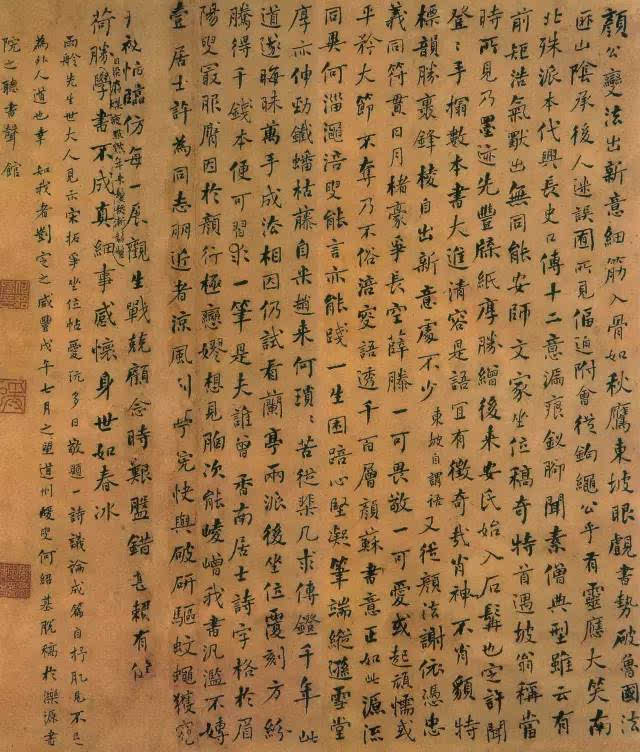 顏公變法出新意細筋入骨如秋鷹東坡眼覷書勢破魯國法
山陰承後人迷誤圖所見偪迫附會從鉤繩公乎有靈應大笑南
北殊派本代興長史口傳十二意漏痕釵腳聞素僧典型雖云有
前矩浩氣出無同能安師文家坐位稿奇特首遇坡翁稱當
時所見乃墨迹先豐縑紙厚勝繒後來安民始入石也定許聞
登〻手搨數本書大進清容是語宜有徵奇哉肖神不肖貌特
標韻勝裹鋒稜自出新意處不少東坡自謂語又從顏法謝依憑忠
義同符貫日月楮豪爭長空薛滕一可畏敬一可愛或起頑懦或
平矜大節不奪乃不俗涪叟語透千百層顏蘇書意正如此源流
同異何淄澠涪叟能言亦能踐一生困踣心堅凝筆端縱遜雪堂
厚亦伸勁鐵蟠枯藤自米趙來何瑣〻苦從棐几求傳鐙千年此
道遂晦昧萬手成沿相因仍試看蘭亭兩派後坐位覆刻方紛
騰得千錢本便可習求一筆是夫誰曾香南居士詩字格於眉
陽叟最服膺因於顏行極戀嫪想見胸次能崚嶒我書汎濫不專
壹居士許為同志朋近者涼風到快與破研驅蚊蠅獲窺
秘惜臨仿每一展觀生戰兢顧念時艱盬錯甚賴有
荷勝學書不成真細事感懷身世如春冰
雨舲先生世大人見示宋拓爭坐位帖愛玩多日敬題一詩議論成篇自抒肊見不足
為外人道也幸 如我者劉定之咸豐戊午七月之望道州蝯叟何紹基脫稿於濼源書
院之聽書聲館